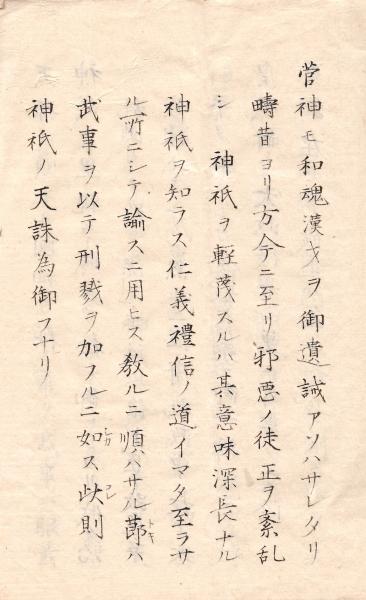 菅神モ和魂漢才ヲ御遺誡アソハサレタリ
疇昔ヨリ方今ニ至リ邪悪ノ徒正ヲ紊乱
シ　神祇ヲ軽蔑スルハ其意味深長ナル
神祇ヲ知ラス仁義禮信ノ道イマタ至ラサ
ル所ニシテ諭スニ用ヒス教ルニ順ハサル節ハ
武事ヲ以テ刑戮ヲ加フルニ如ス此則
神祇ノ天誅為御フナリ